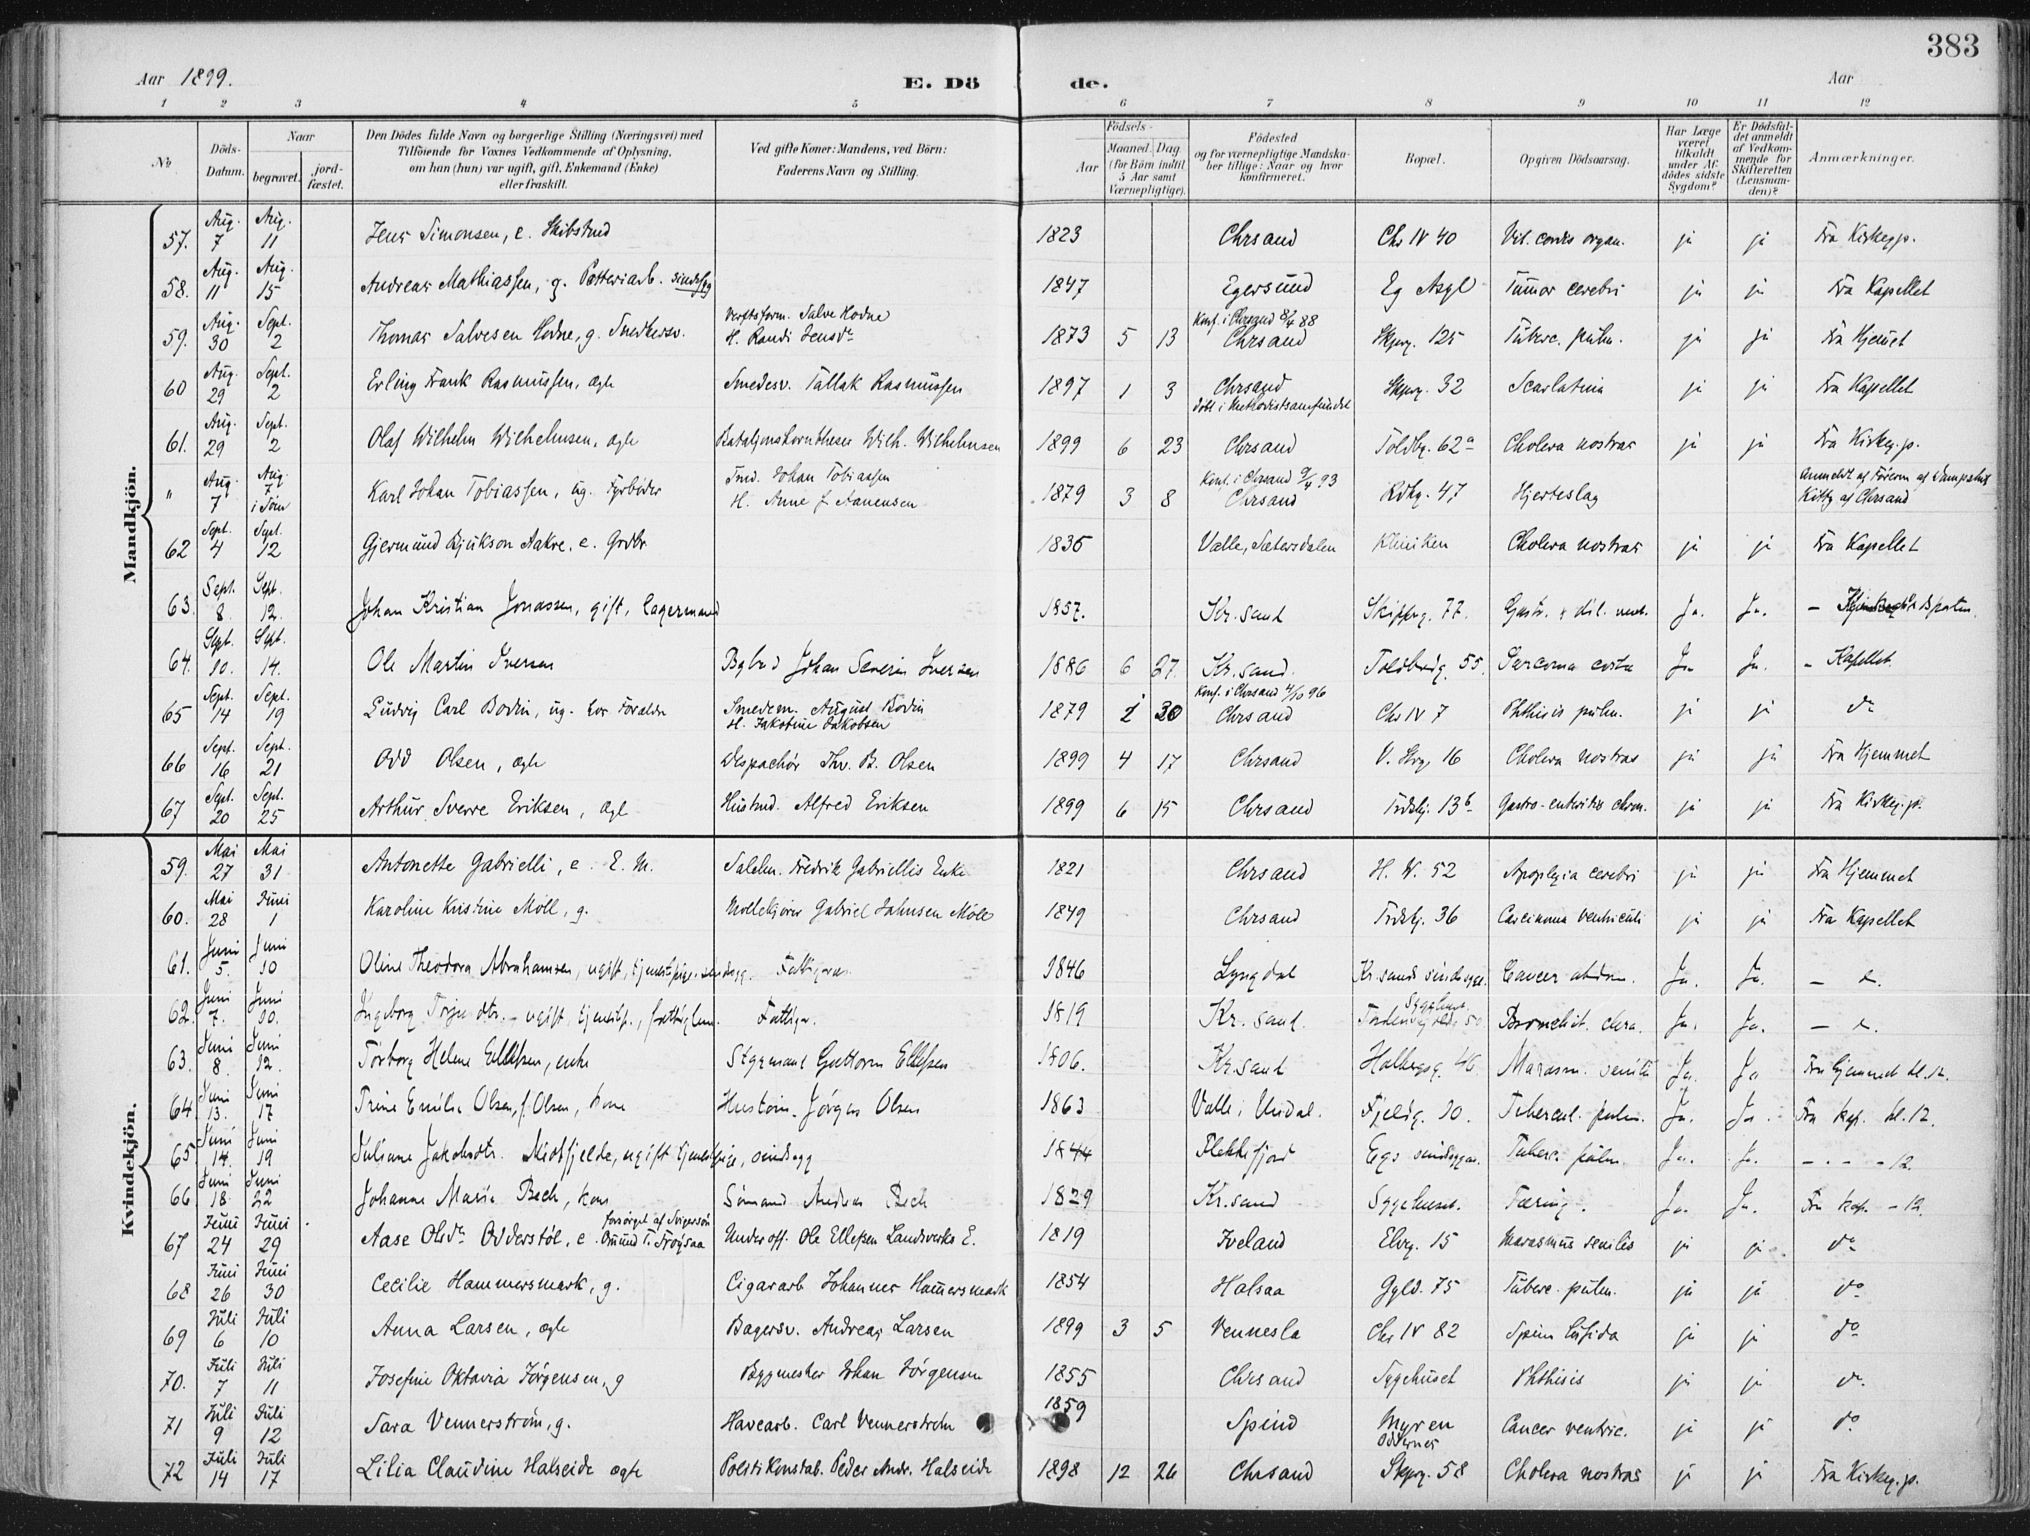 383
Aar 1899.
E. Dö de.
Aar
1 2 3 4 5 6 7 8 9 10 11 12
No
Döds-Datum.
Naar
begravet.
jord-fæstet.
Den Dödes fulde Navn og borgerlige Stilling (Næringsvei) med
Tilföiende for Voxnes Vedkommende af Oplysning,
om han (hun) var ugift, gift, Enkemand (Enke)
eller fraskilt.
Ved gifte Koner: Mandens, ved Börn:
Faderens Navn og Stilling.
Födsels-
Aar
Maaned. Dag
(for Börn indtil
5 Aar samt
Værnepligtige).
Födested
og for værnepligtige Mandska-
ber tillige: Naar og hvor
konfirmeret.
Bopæl.
Opgiven Dödsaarsag.
Har Læge
været
tilkaldt
under Af-
dödes sidste
Sygdom?
Er Dödsfal-
det anmeldt
af Vedkom-
mende for
Skifteretten
(Lensman-
den)?
Anmærkninger.
Mandkjön.
57. Aug. 7 Aug. 11 Jens Simonsen, e. 1823 Chrsand Chr IV 40 Vit. cordis organ. ja ja Fra Kirkeg.p.
58. Aug. 11 Aug. 15 Andreas Mathiassen, g. Potteriarb. sindssyg 1847 Egersund Eg Asyl Tumor cerebri ja ja Fra Kapellet
59. Aug. 30 Sept. 2 Thomas Salvesen Hodne, g. Snedkersv. Verftsform. Salve Hodne H. Randi Jensdr 1873 5 13 Konf. i Chrsand 8/4 88 Chrsand Skprg. 125 Tuberc. pulm. ja ja Fra Hjemet
60 Aug. 29 Sept. 2 Erling Frank Rasmussen, ægte Smedesv. Tallak Rasmussen 1897 1 3 Chrsand döbt i Methodistsamfundet Skprg. 32 Scarlatina ja ja Fra Kapellet
61. Aug. 29 Sept. 2 Olaf Wilhelm Wilhelmsen, ægte Wilh. Wilhelmsen 1899 6 23 Chrsand Toldbg. 62a Cholera nostras ja ja Fra Kirkeg.p.
" Aug. 7 Aug. 7 i Søen Karl Johan Tobiassen, ug. Fyrböder Johan Tobiassen H. Anne f. Aanensen 1879 3 8 Konf. i Chrsand 9/4 93 Chrsand Rdhg. 47 Hjerteslag Anmeldt af Föreren af Dampskib Kitty af Chrsand
62 Sept. 4 Sept. 12 Gjermund Aakre, e. Grdbr 1835 Valle, Sætersdalen Kliniken Cholera nostras ja ja Fra Kapellet
63. Sept. 8. Sept. 12. Johan Kristian Jonassen, gift, lagermand 1857. Kr.sand Skipperg. 77. Ja. Ja.
64. Sept. 10. Sept. 14. Ole Martin Iversen Bybud Johan Severin Iversen 1886 6 27. Kr.sand. Toldbodg. 55. Sarcoma costa Ja Ja. - Kapellet
65 Sept. 14 Sept. 19 Ludvig Carl Bodin, ug. hos Forældre Smedem. August Bodin H. Jakobine Jakobsen 1879 30 Konf. i Chrsand 4/10 96 Chrsand Chr IV 7 Phthisis pulm. ja ja do
66 Sept. 16 Sept. 21 Odd Olsen, ægte Thv. B. Olsen 1899 4 17 Chrsand V. Strg. 16 Cholera nostras ja ja Fra Hjemmet
67 Sept. 20 Sept. 25 Arthur Sverre Eriksen, ægt Alfred Eriksen 1899 6 15 Chrsand Trdskj. 13b Gastro-enteritis chron. ja ja Fra Kirkeg.p.
Kvindekjön.
59. Mai 27 Mai 31 Antonette Gabrielli, e. E. M. Fredrik Gabriellis Enke 1821 Chrsand H. W. 52 Apoplexia cerebri ja ja Fra Hjemmet
60. Mai 28 Juni 1 Karoline Kristine Moll, g. Gabriel Møll 1849 Chrsand Trdskj. 36 Carcinoma ventriculi ja ja Fra Kapellet
61. Juni 5. Juni 10 Oline Theodora Abrahamsen, ugift, tjenestpige 1846 Lyngdal Kr.sands sindssygeas. Cancer abdom. Ja. Ja. - d.
62. Juni 7. Juni 10. Ingeborg ugift, tjenestp., fattiglem. Fattigv. 1819 Kr.sand. Bronchit. chron. Ja. Ja. - d.
63. Juni 8. Juni 12. Torborg Helene Ellefsen, enke Styrmand Guttorm Ellefsen 1806. Kr.sand Holbergsg. 46. Marasm. senilis Ja. Ja Fra Hjemmet kl. 12.
64. Juni 13. Juni 17 Trine Emilie Olsen, f. Olsen, kone Jörgen Olsen 1863 Valle i Undal. Fjeldg. 10. Tubercul. pulm. Ja. Ja. Fra kap. kl. 12.
65 Juni 14. Juni 19 Juliane Jakobsdtr. Midtfjelde, ugift tjenestpige, sindssyg 1844 Flekkefjord Egs sindssygeas. Tuberc. pulm. Ja. Ja. - - - - 12.
66. Juni 18. Juni 22 Johanne Marie Bech, kone Sömand Andreas Bech 1829 Kr.sand Sygehuset. Tæring. Ja. Ja. Fra kap. - 12.
67 Juni 24 Juni 29 Aase Olsdr Odderstöl, e. forsörget af Svigersön Omund T. Fröysaa Underoff. Ole Ellefsen Landsverks E. 1819 Iveland Elvg. 15 Marasmus senilis ja ja do
68 Juni 26 Juni 30 Cecilie Hammersmark, g. Cigararb Johannes Hammersmark 1854 Halsaa Gyld. 75 Tuberc. pulm. ja ja do
69 Juli 6 Juli 10 Anna Larsen, ægte Bagersv. Andreas Larsen 1899 3 5 Vennesla Chr IV 82 Spina bifida ja ja do
70. Juli 7 Juli 11 Josefine Oktavia Jørgensen, g Byggmester Johan Jørgensen 1855 Chrsand Sygehuset Phthisis ja ja do
71 Juli 9 Juli 12 Sara Vennerström, g. Havearb. Carl Vennerström 1859 Spind Myren Oddernes Cancer ventric. ja ja do
72 Juli 14 Juli 17 Lilia Claudine Halseide ægte Politikonstab. Peder Andr. Halseide 1898 12 26 Chrsand Skprg. 58 Cholera nostras ja ja Fra Kirkeg.p.